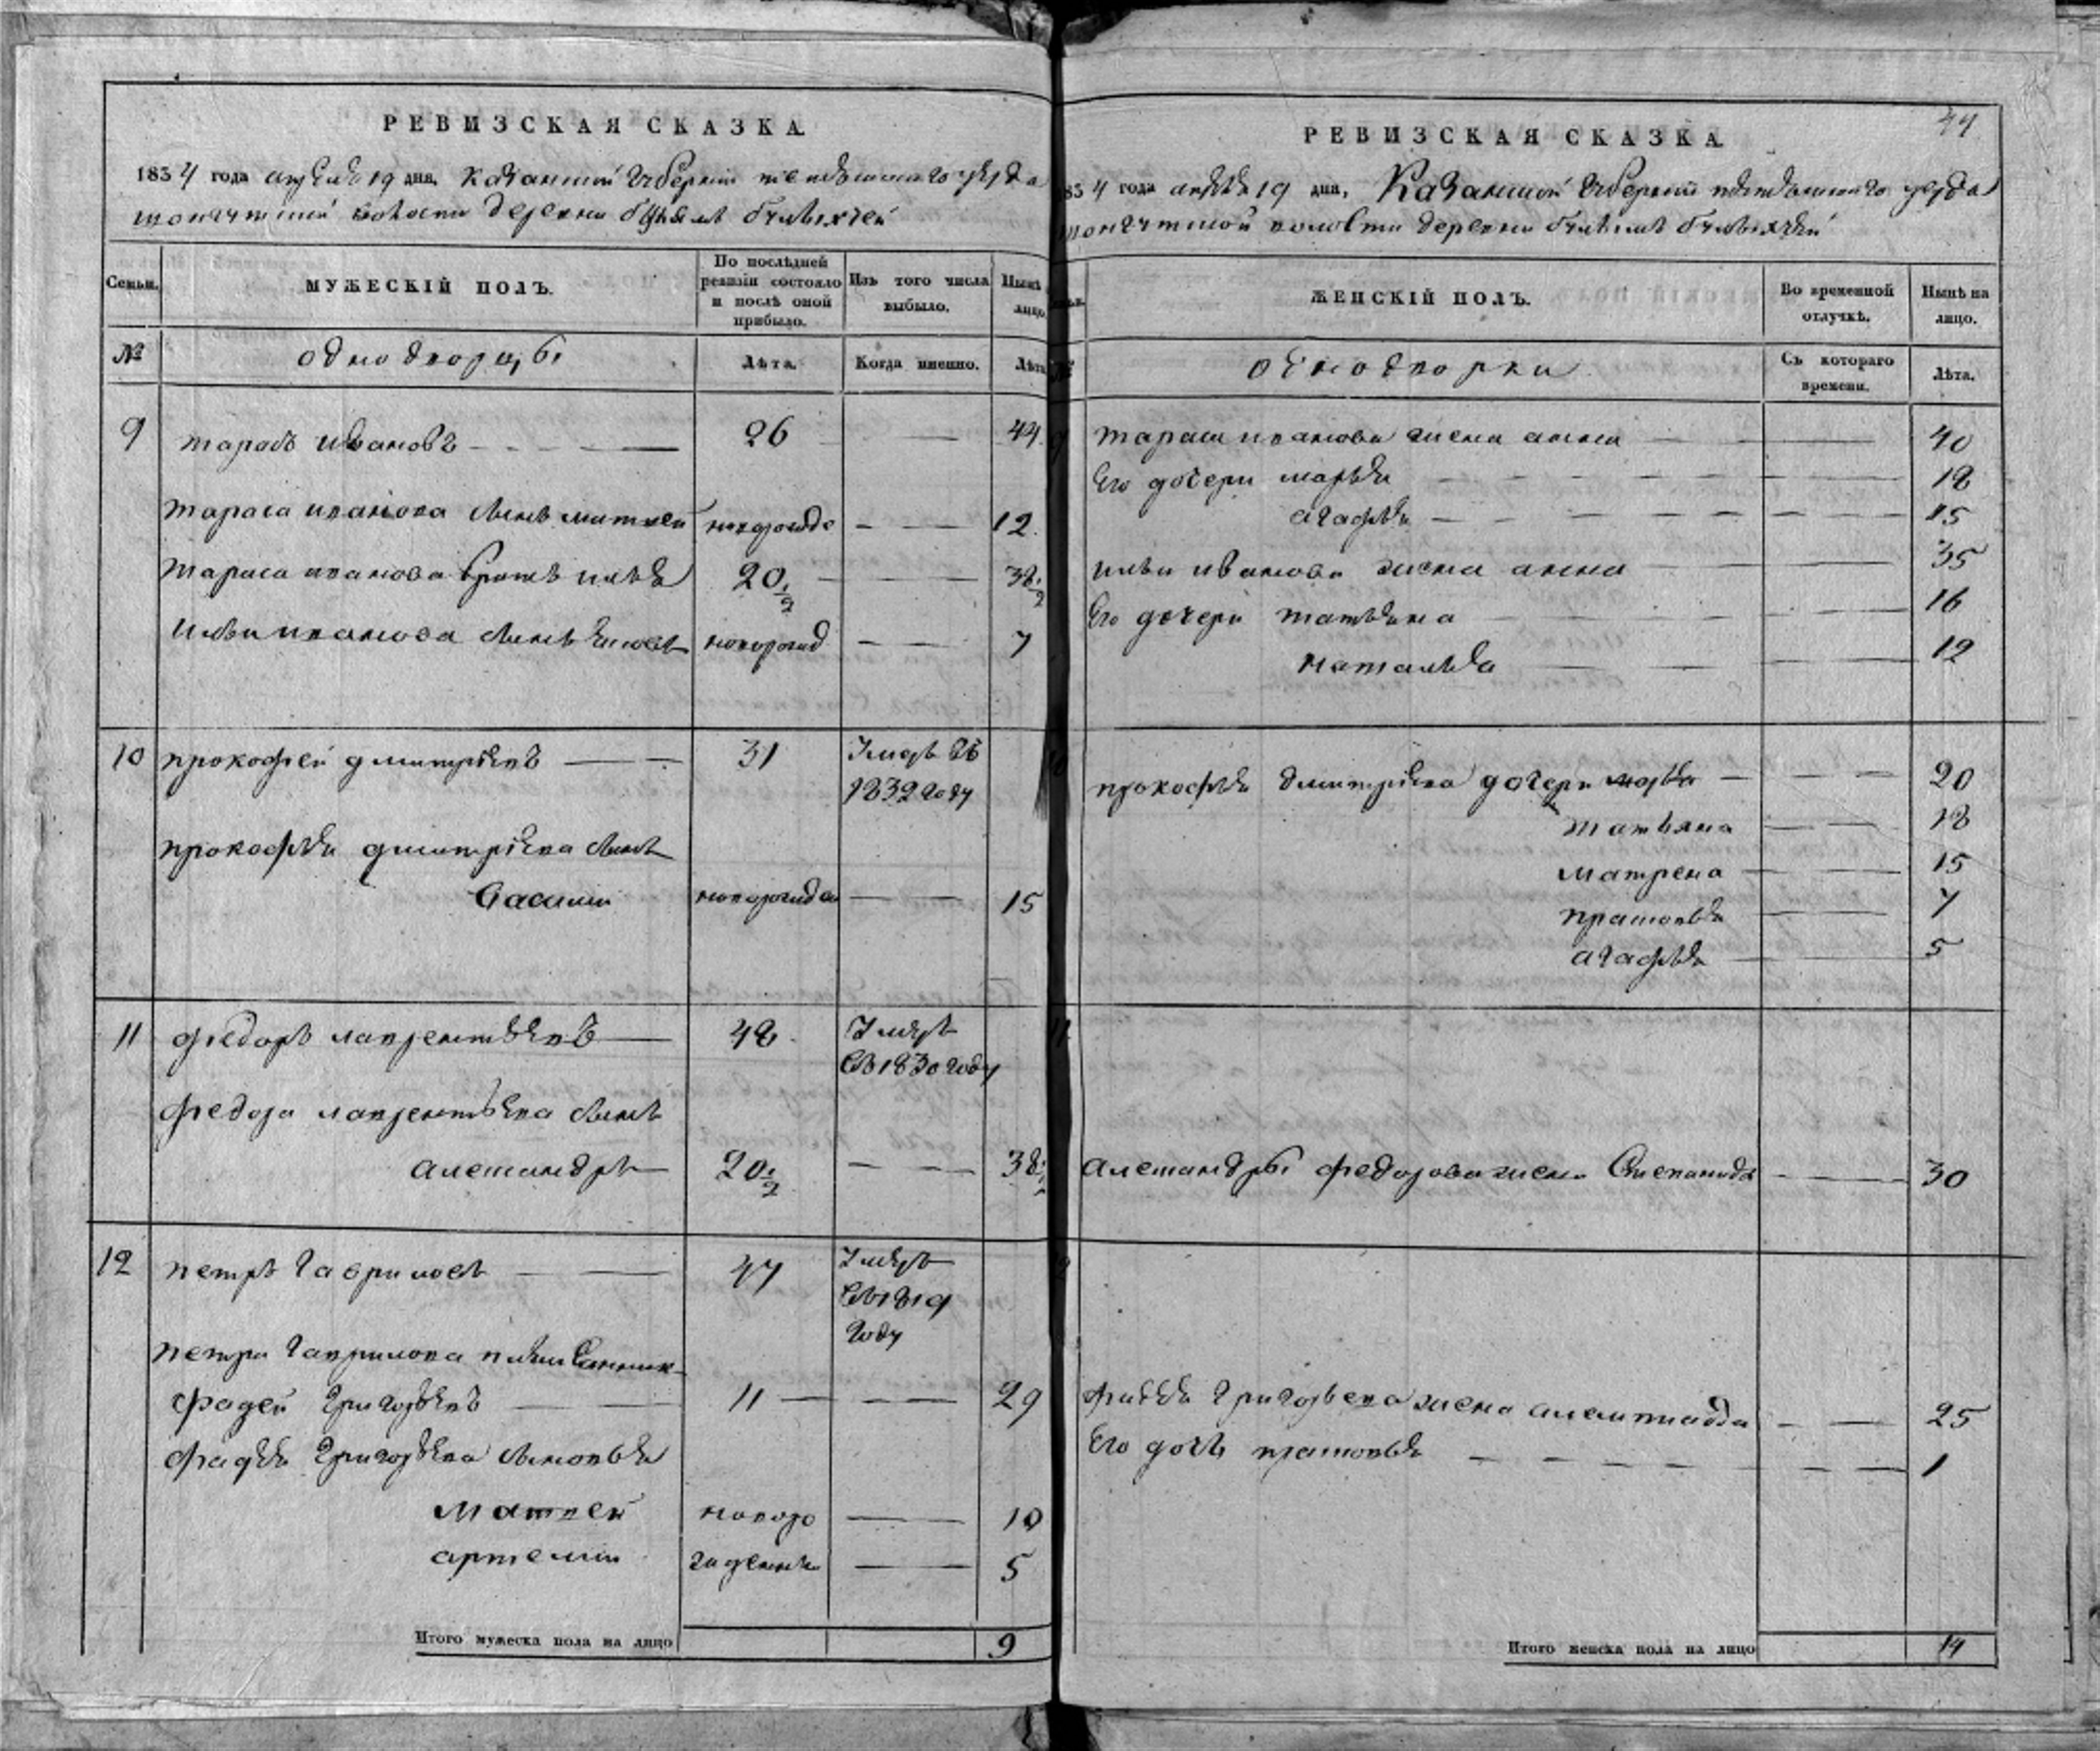 РЕВИЗСКАЯ СКАЗКА
1834 года апреля 19 дня, Казанской Губернии уезда
волости деревни
Семьи.
МУЖЕСКІЙ ПОЛЪ.
По послѣдней ревизіи состояло и послѣ оной прибыло.
Изъ того числа выбыло.
Нынѣ на лицо.
№
однодворцы
Лѣта.
Когда именно.
Лѣта
9 тарасъ ивановъ 26 44
тараса иванова сынъ матвей новорожде 12
тараса иванова братъ илья 20 1/2 38 1/2
ильи иванова сынъ новорожд 7
10 прокофей дмитріевъ 31 Умеръ въ
1832 году
прокофья дмитріева сынъ
Василии новорожден 15
11 федоръ лаврентьевъ 48 Умеръ
въ 1830 году
федора лаврентьева сынъ
александръ 20 1/2 38 1/2
12 петръ гавриловъ 47 Умеръ
въ 1819
году
петра гаврилова племянник
фадей григорьевъ 11 29
фадея григорьева сыновья
матвей новоро 10
артемии жденны 5
Итого мужеска пола на лицо 9
44
РЕВИЗСКАЯ СКАЗКА
1834 года апреля 19 дня, Казанской Губернии уезда
волости деревни
ЖЕНСКІЙ ПОЛЪ.
Во временной отлучкѣ.
Нынѣ на лицо.
однодворки
Съ котораго времени.
Лѣта.
9 тараса иванова жена анна 40
Его дочери марья 18
агафья 15
ильи иванова жена анна 35
Его дочери татьяна 16
наталья 12
10 прокофья дмитріева дочери марья 20
татьяна 18
матрена 15
прасковья 7
агафья 5
11
александры федорова жена Степанида 30
12
фадея григорьева жена 25
Его дочь прасковья 1
Итого женска пола на лицо 14